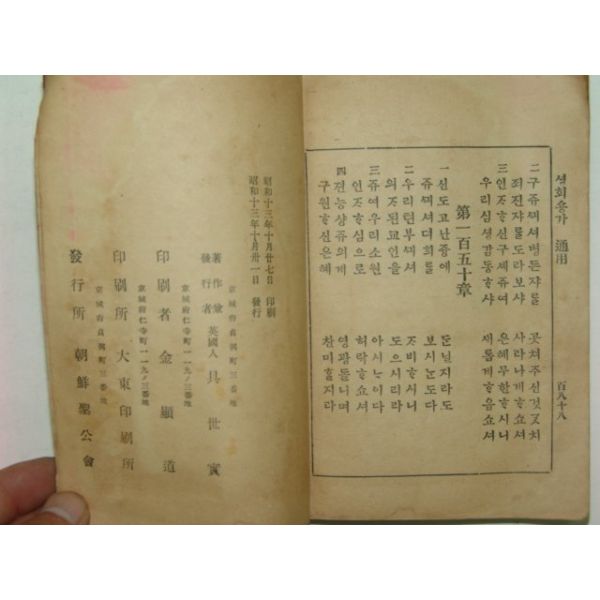 셩회숑가 通用 百八十八
二 구쥬ᄭᅴ셔병든쟈를 곳쳐주신것ᄀᆞᆺ치
죄진쟈를도라보샤 사라나게ᄒᆞ쇼셔
三 인ᄌᆞᄒᆞ신구셰쥬여 은혜무한ᄒᆞ시니
우리심셩감동ᄒᆞ샤 새롭게ᄒᆞ옵쇼셔
第一百五十章
一 신도고난즁에 둔닐지라도
쥬ᄭᅴ셔뎌희를 보시ᄂᆞ도다
二 우리텬부ᄭᅴ셔 ᄌᆞ비ᄒᆞ시니
의ᄌᆞ된교인을 도으시리라
三 쥬여우리소원 아시ᄂᆞ이다
인ᄌᆞᄒᆞ심으로 허락ᄒᆞ쇼셔
四 젼능샹쥬의게 영광돌니며
구원ᄒᆞ신은혜 찬미ᄒᆞᆯ지라
昭和十三年十月廿七日 印刷
昭和十三年十月卅一日 發行
京城府貞洞町三番地
著作兼發行者 英國人 具世實
京城府仁寺町一一九ノ三番地
印刷者 金顯道
京城府仁寺町一一九ノ三番地
印刷所 大東印刷所
京城府貞洞町三番地
發行所 朝鮮聖公會